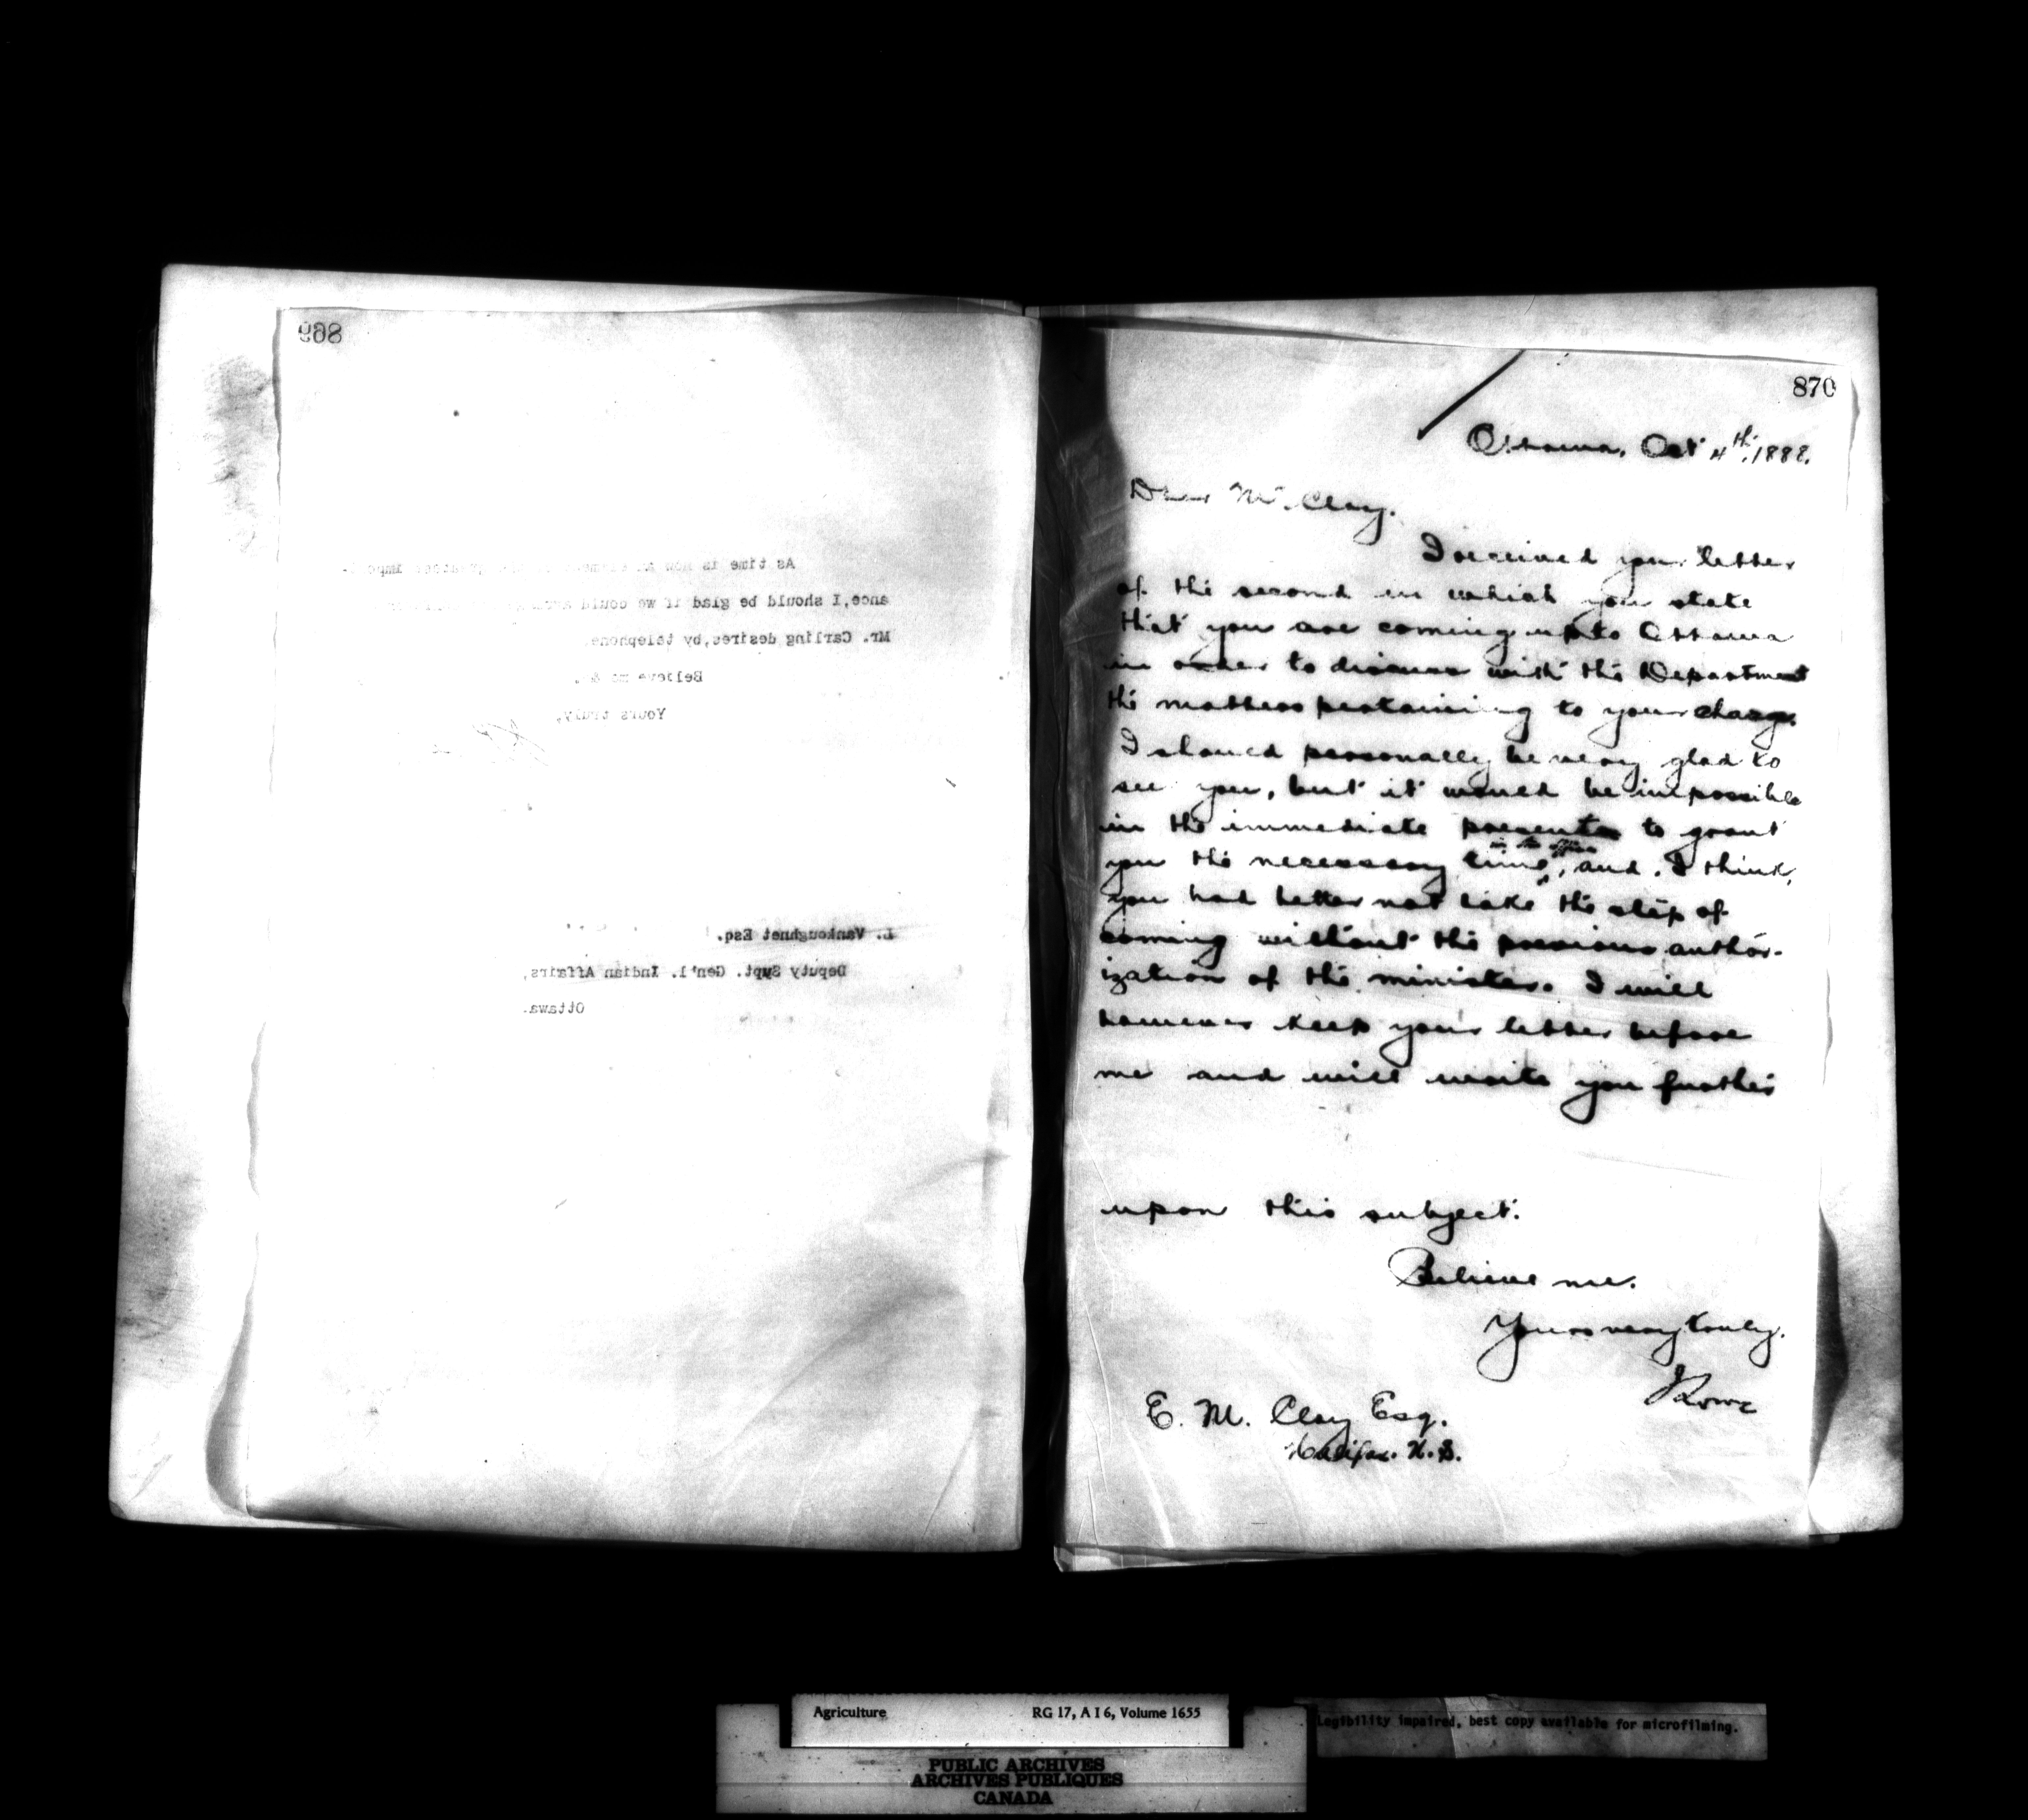 869
As time is now an element of the greatest import-
ance, I should be glad if we could
Mr. Carling desires, by telephone.
Believe me &.,
Yours truly,
L. Vankoughnet Esq.
Deputy Supt. Gen'l. Indian Affairs,
Ottawa.
870
Ottawa, Oct 4th, 1888.
Dear Mr. Clay.
I received your letter
of the second in which you state
that you are coming up to Ottawa
in order to discuss with the Department
the matters pertaining to your charge.
I should personally be very glad to
see you, but it would be impossible
in the immediate present to grant
in the office
you the necessary time, and, I think,
you had better not take the step of
coming without the previous author-
ization of the minister. I will
however keep your letter before
me and will write you further
upon this subject.
Believe me.
Yours very truly.
J Lowe
E. M. Clay Esq.
Halifax. N.S.
Agriculture RG 17, A I 6, Volume 1655
Legibility impaired, best copy available for microfilming.
PUBLIC ARCHIVES
ARCHIVES PUBLIQUES
CANADA